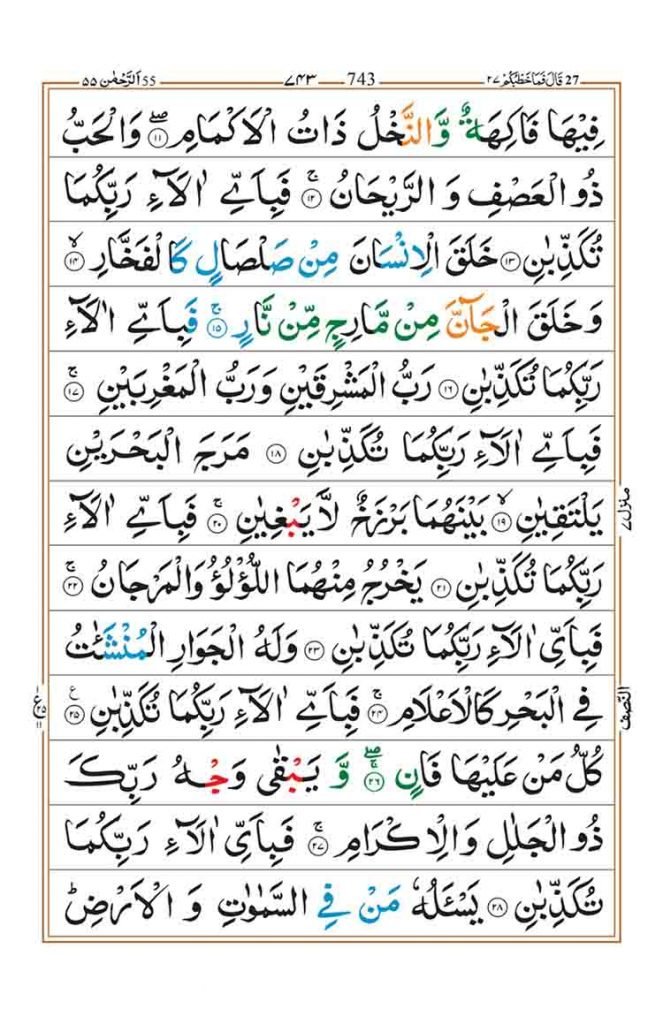 27 قَالَ فَمَا خَطْبُكُمْ ٢٧ 743 ٧٤٣ 55 اَلرَّحْمٰن ٥٥
فِيْهَا فَاكِهَةٌ وَّالنَّخْلُ ذَاتُ الْاَكْمَامِ ۖ ۝١١ وَالْحَبُّ
ذُو الْعَصْفِ وَ الرَّيْحَانُ ۚ ۝١٢ فَبِاَيِّ اٰلَآءِ رَبِّكُمَا
تُكَذِّبٰنِ ۝١٣ خَلَقَ الْاِنْسَانَ مِنْ صَلْصَالٍ كَالْفَخَّارِ ۙ ۝١٤
وَ خَلَقَ الْجَآنَّ مِنْ مَّارِجٍ مِّنْ نَّارٍ ۚ ۝١٥ فَبِاَيِّ اٰلَآءِ
رَبِّكُمَا تُكَذِّبٰنِ ۝١٦ رَبُّ الْمَشْرِقَيْنِ وَرَبُّ الْمَغْرِبَيْنِ ۚ ۝١٧
فَبِاَيِّ اٰلَآءِ رَبِّكُمَا تُكَذِّبٰنِ ۝١٨ مَرَجَ الْبَحْرَيْنِ
يَلْتَقِيٰنِ ۙ ۝١٩ بَيْنَهُمَا بَرْزَخٌ لَّا يَبْغِيٰنِ ۚ ۝٢٠ فَبِاَيِّ اٰلَآءِ
منزل ٧
رَبِّكُمَا تُكَذِّبٰنِ ۝٢١ يَخْرُجُ مِنْهُمَا اللُّؤْلُؤُ وَالْمَرْجَانُ ۚ ۝٢٢
فَبِاَيِّ اٰلَآءِ رَبِّكُمَا تُكَذِّبٰنِ ۝٢٣ وَلَهُ الْجَوَارِ الْمُنْشَـٰٔتُ
فِي الْبَحْرِ كَالْاَعْلَامِ ۚ ۝٢٤ فَبِاَيِّ اٰلَآءِ رَبِّكُمَا تُكَذِّبٰنِ ۝٢٥ ع
النصف
كُلُّ مَنْ عَلَيْهَا فَانٍ ۚۖ ۝٢٦ وَّ يَبْقٰى وَجْهُ رَبِّكَ
ذُو الْجَلٰلِ وَالْاِكْرَامِ ۚ ۝٢٧ فَبِاَيِّ اٰلَآءِ رَبِّكُمَا
تُكَذِّبٰنِ ۝٢٨ يَسْـَٔلُهٗ مَنْ فِي السَّمٰوٰتِ وَ الْاَرْضِ ؕ